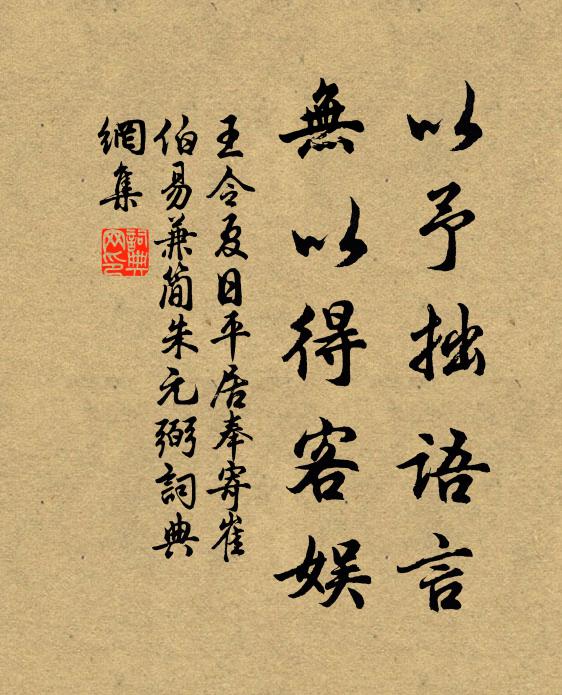 以予拙語言
無以得客娛
王令夏日平居奉寄崔
伯易兼简朱元弼詞典
網集
詞典
网印